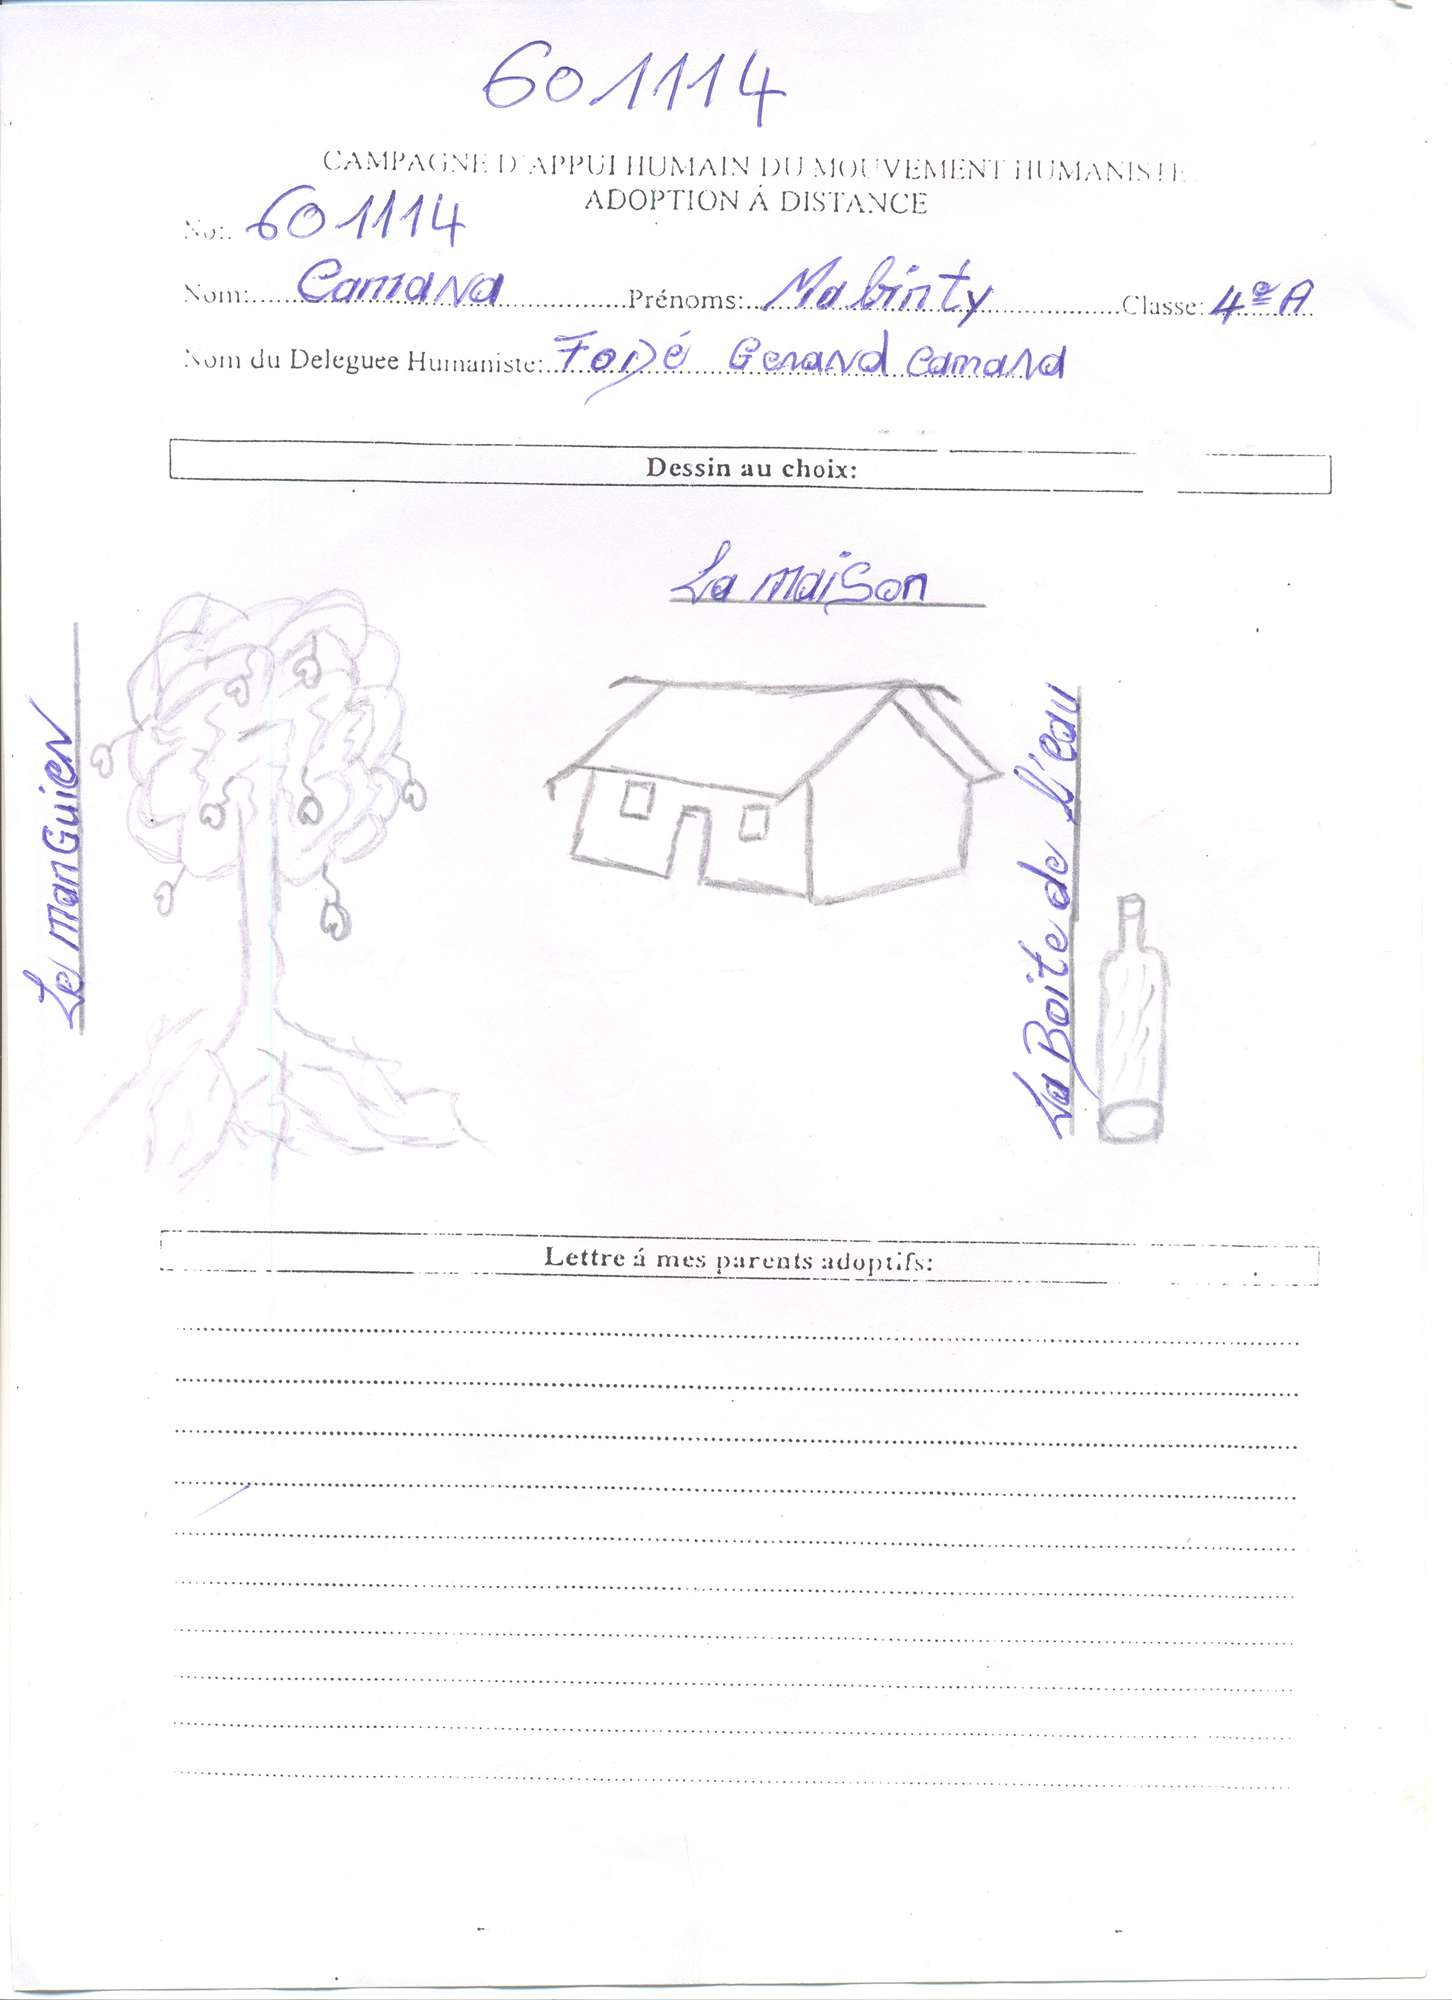 601114
CAMPAGNE D'APPUI HUMAIN DU MOUVEMENT HUMANISTE
ADOPTION Á DISTANCE
No: 601114
Nom: Camara Prénoms: Mabinty Classe: 4e A
Nom du Deleguee Humaniste: Fodé Gerard Camara
Dessin au choix:
La maison
Le manGuier
La Boite de l'eau
Lettre á mes parents adoptifs: